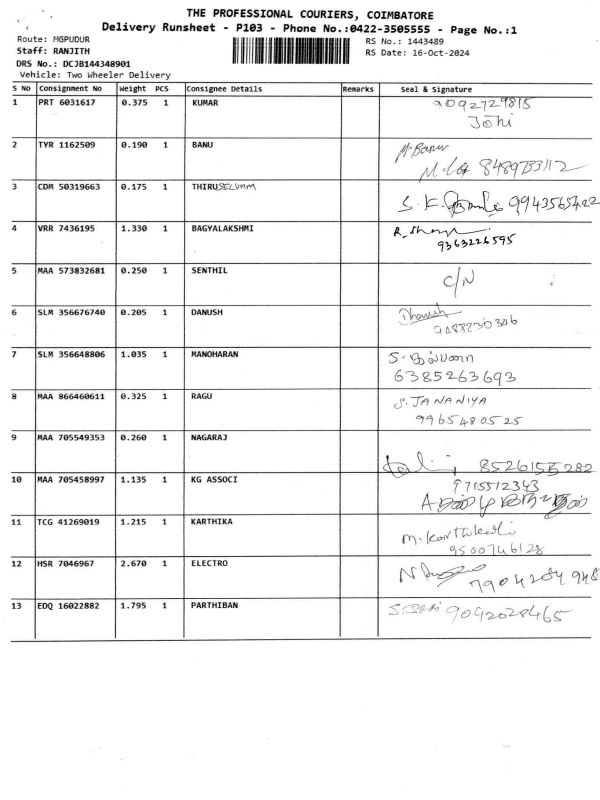 THE PROFESSIONAL COURIERS, COIMBATORE
Delivery Runsheet - P103 - Phone No.:0422-3505555 - Page No.:1
Route: MGPUDUR
RS No.: 1443489
Staff: RANJITH
RS Date: 16-Oct-2024
DRS No.: DCJB144348901
Vehicle: Two Wheeler Delivery
S No Consignment No Weight PCS Consignee Details Remarks Seal & Signature
1 PRT 6031617 0.375 1 KUMAR 9092729815
Johi
2 TYR 1162509 0.190 1 BANU M. Banu
8489783112
3 CDM 50319663 0.175 1 THIRUSELVAM S. K. 9943565422
4 VRR 7436195 1.330 1 BAGYALAKSHMI
9363226595
5 MAA 573832681 0.250 1 SENTHIL C/N
6 SLM 356676740 0.205 1 DANUSH Dhanush
9488230346
7 SLM 356648806 1.035 1 MANOHARAN
6385263693
8 MAA 866460611 0.325 1 RAGU S. JANANIYA
9965480525
9 MAA 705549353 0.260 1 NAGARAJ 8526155282
10 MAA 705458997 1.135 1 KG ASSOCI 9715512343
11 TCG 41269019 1.215 1 KARTHIKA M. Karthikali
9500746128
12 HSR 7046967 2.670 1 ELECTRO 7904284948
13 EDQ 16022882 1.795 1 PARTHIBAN 9092028465